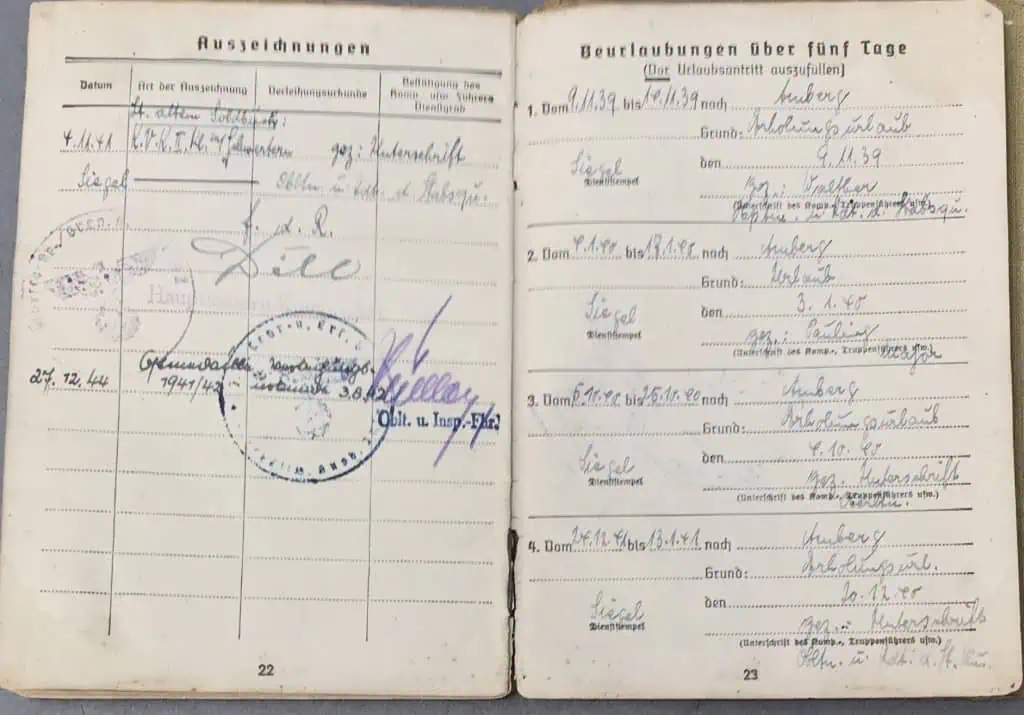 Auszeichnungen
Datum
Art der Auszeichnung
Verleihungsurkunde
Bestätigung des Komp.- usw. Führers Dienstgrad
Lt. altem Soldbuch:
4.11.41 K.V.K. II. Kl. m/ Schwertern gez: Unterschrift
Siegel Obltn u. Kdt. d. Stabsqu.
f. d. R.
27.12.44
1941/42
Oblt. u. Insp.-Fhr.
22
Beurlaubungen über fünf Tage
(Vor Urlaubsantritt auszufüllen)
1. Vom 9.11.39 bis 19.11.39 nach Amberg
Grund: Erholungsurlaub
Siegel den 9.11.39
Dienststempel
gez.: Walther
(Unterschrift des Komp.-, Truppenführers usw.)
Hptm. u. Kdt. d. Stabsqu.
2. Vom 4.1.40 bis 17.1.40 nach Amberg
Grund: Urlaub
Siegel den 3.1.40
Dienststempel
gez.: Pauling
(Unterschrift des Komp.-, Truppenführers usw.)
Major
3. Vom 6.10.40 bis 26.10.40 nach Amberg
Grund: Erholungsurlaub
Siegel den 4.10.40
Dienststempel
gez. Unterschrift
(Unterschrift des Komp.-, Truppenführers usw.)
4. Vom 24.12. bis 13.1.41 nach Amberg
Grund: Erholungsurl.
Siegel den 20.12.40
Dienststempel
gez.: Unterschrift
(Unterschrift des Komp.-, Truppenführers usw.)
Obltn. u. Kdt. d. St. Qu.
23